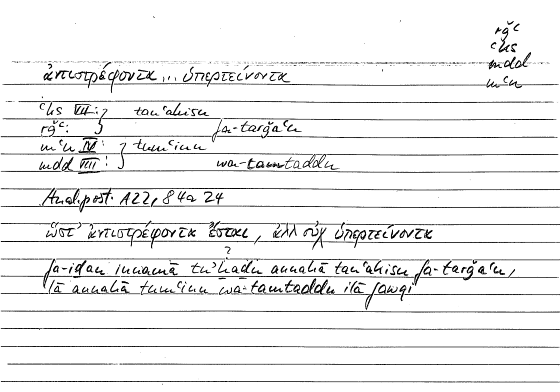 rǧʿ
ʿks
mdd
mʿn
ἀντιστρέφοντα ... ὑπερτείνοντα
ʿks VII: } tanʿakisu
rǧʿ: fa-tarǧaʿu
mʿn IV: } tumʿinu
mdd VIII: wa-tamtaddu
Anal.post. A22, 84a 24
ὥστ' ἀντιστρέφοντα ἔσται, ἀλλ οὐχ ὑπερτείνοντα
?
fa-iḏan innamā tuʾḫaḏu annahā tanʿakisu fa-tarǧaʿu,
lā annahā tumʿinu wa-tamtaddu ilā fawqi